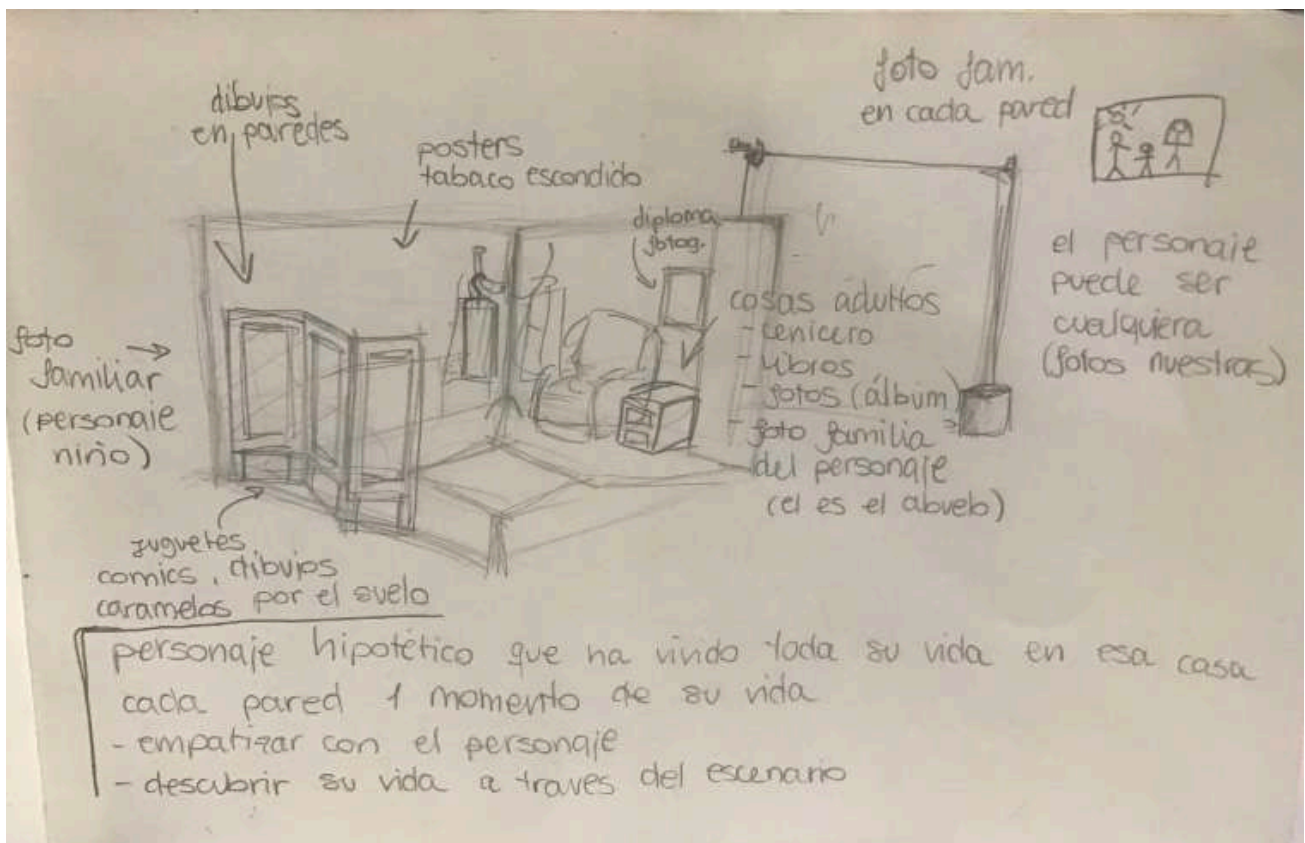 dibujos
en paredes
posters
tabaco escondido
foto fam.
en cada pared
diploma
fotog.
el personaje
puede ser
cualquiera
(fotos nuestras)
foto
familiar
(personaje
niño)
cosas adultos
- cenicero
- libros
- fotos (álbum)
- foto familia
del personaje
(el es el abuelo)
juguetes
comics, dibujos
caramelos por el suelo
personaje hipotético que ha vivido toda su vida en esa casa
cada pared 1 momento de su vida
- empatizar con el personaje
- descubrir su vida a traves del escenario